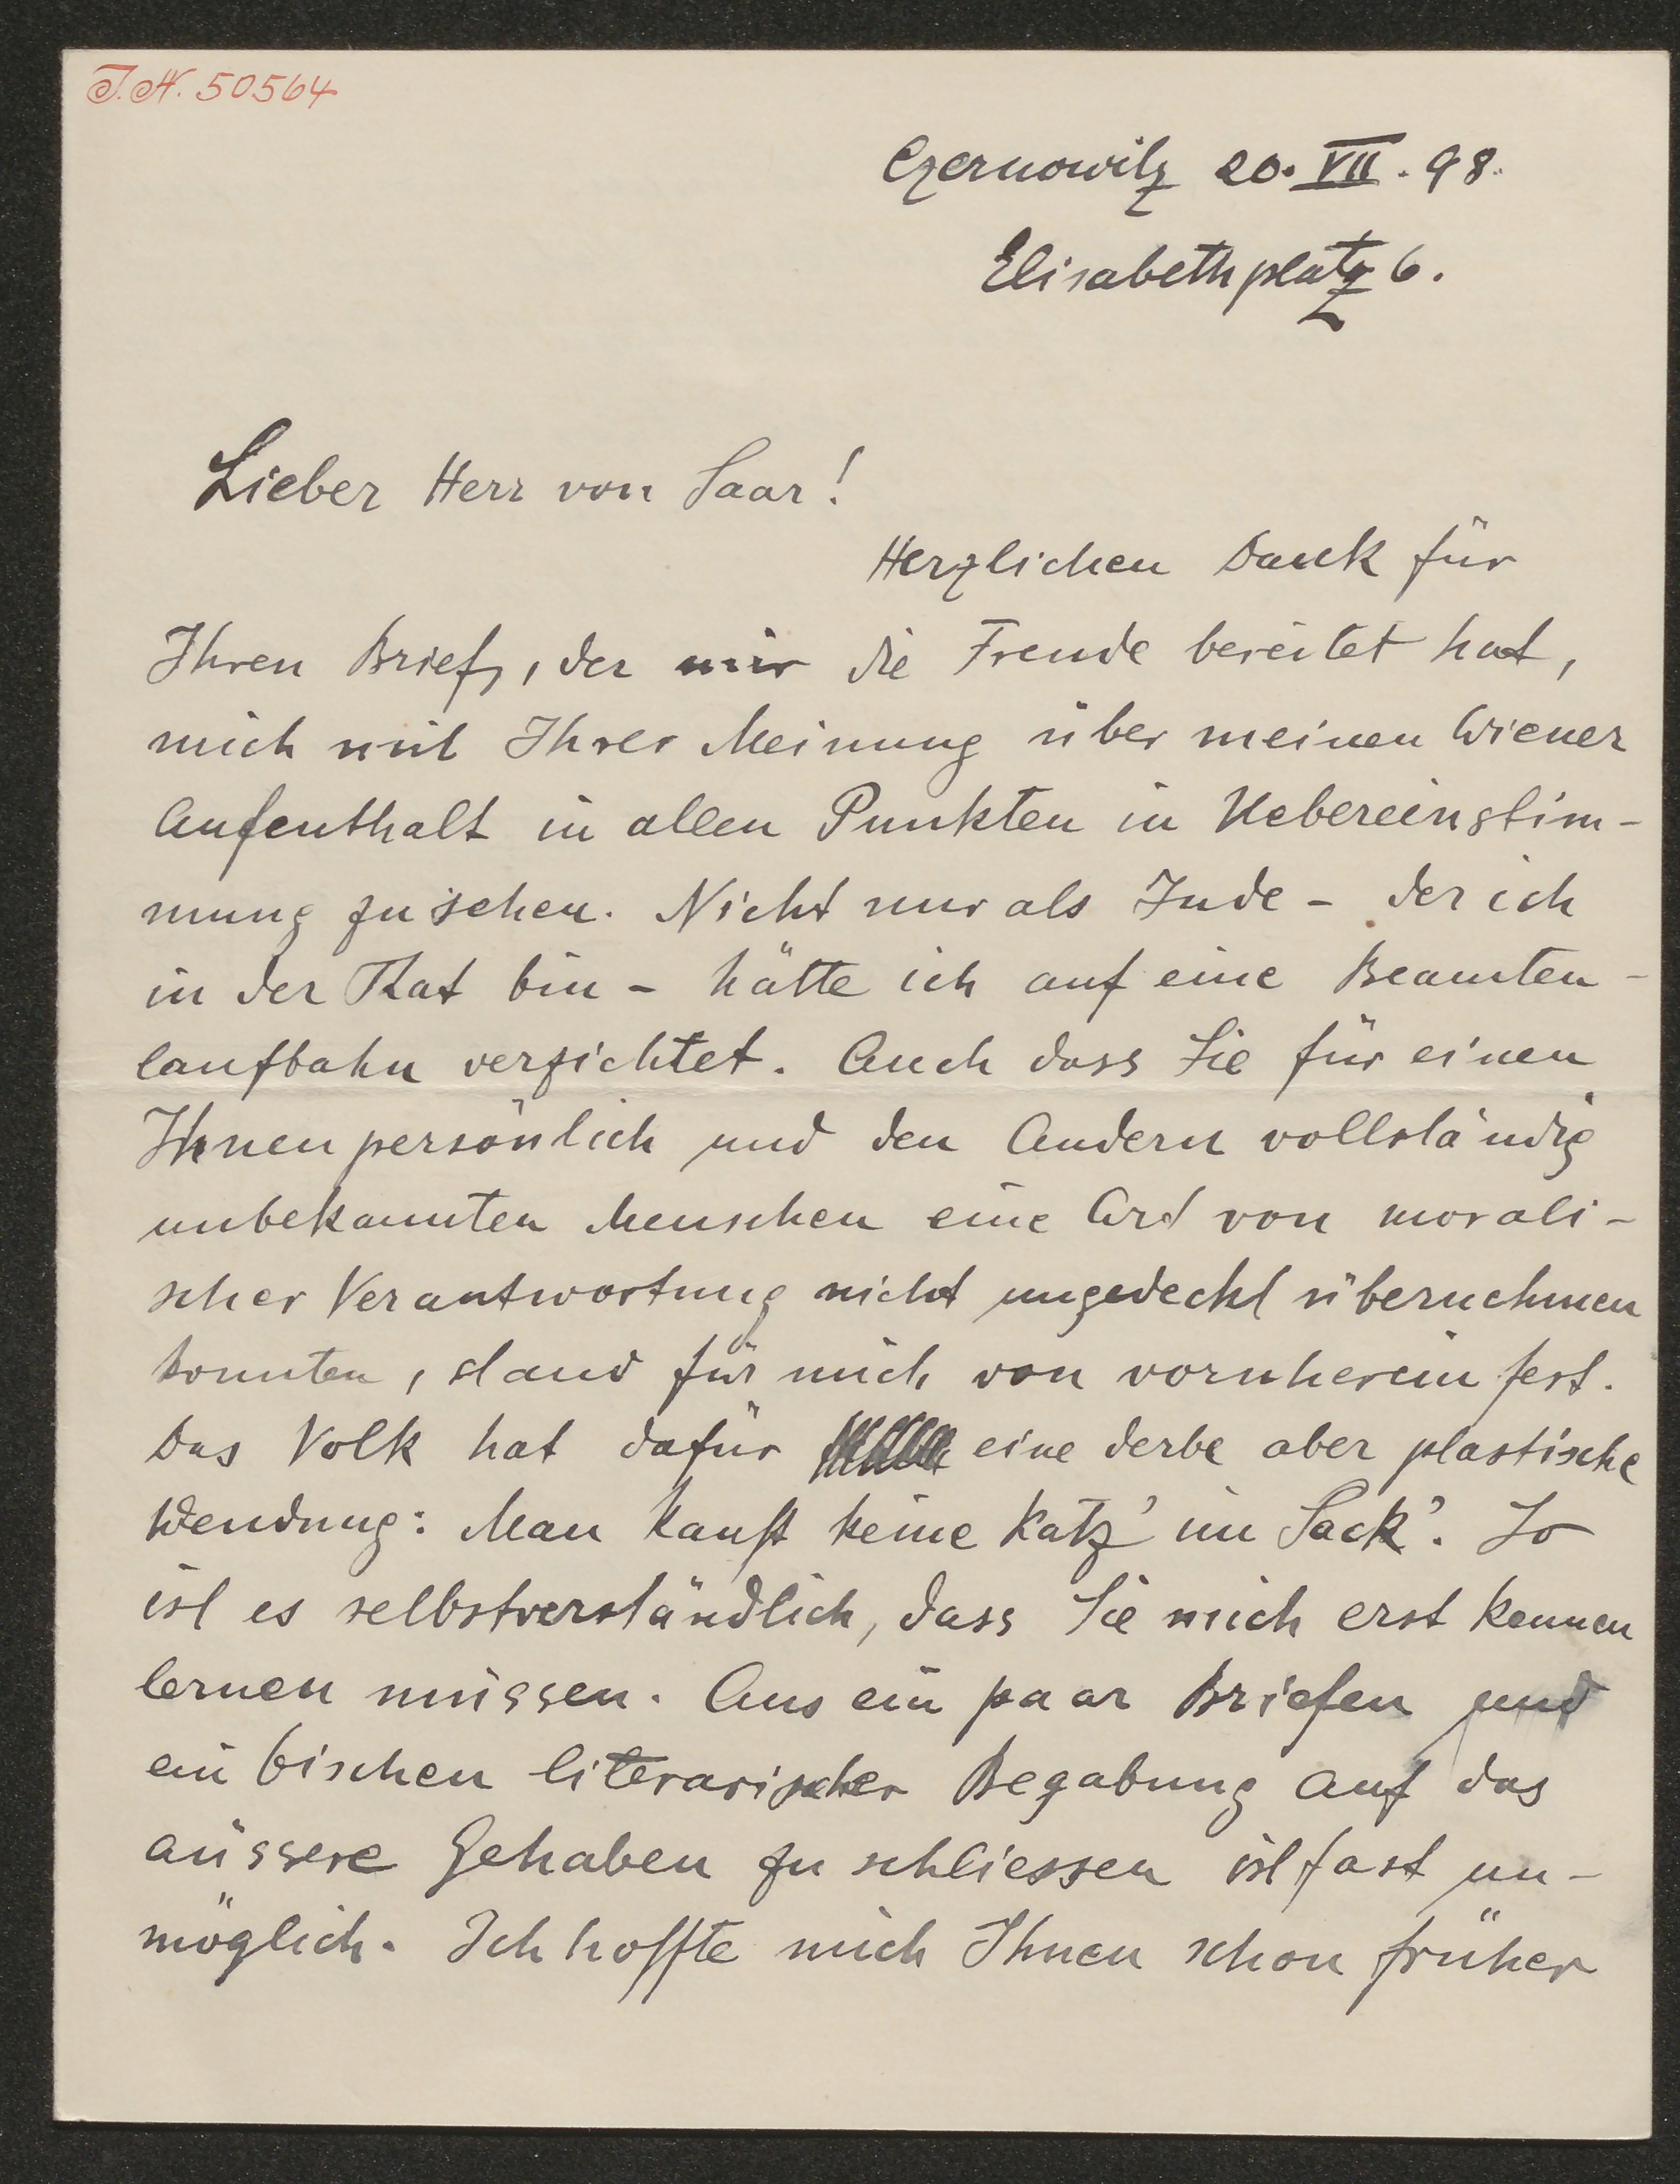 I.N. 50564
Czernowitz 20. VII. 98.
Elisabethplatz 6.
Lieber Herr von Saar!
Herzlichen Dank für
Ihren Brief, der mir die Freude bereitet hat,
mich mit Ihrer Meinung über meinen Wiener
Aufenthalt in allen Punkten in Uebereinstim-
mung zu sehen. Nicht nur als Jude - der ich
in der That bin - hätte ich auf eine Beamten-
laufbahn verzichtet. Auch dass Sie für einen
Ihnen persönlich und den Andern vollständig
unbekannten Menschen eine Art von morali-
scher Verantwortung nicht ungedeckt übernehmen
konnten, stand für mich von vornherein fest.
Das Volk hat dafür eine derbe aber plastische
Wendung: Man kauft keine Katz' im Sack'. So
ist es selbstverständlich, dass Sie mich erst kennen
lernen müssen. Aus ein paar Briefen und
ein bischen literarischer Begabung auf das
äussere Gehaben zu schliessen ist fast un-
möglich. Ich hoffte mich Ihnen schon früher